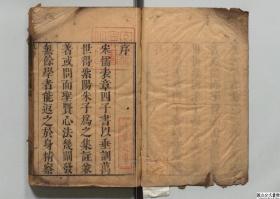 序
宋儒表章四子書以垂訓萬
世得紫陽朱子為之集註彙
著或問而聖賢心法幾闡發
無餘學者能返之於身精察